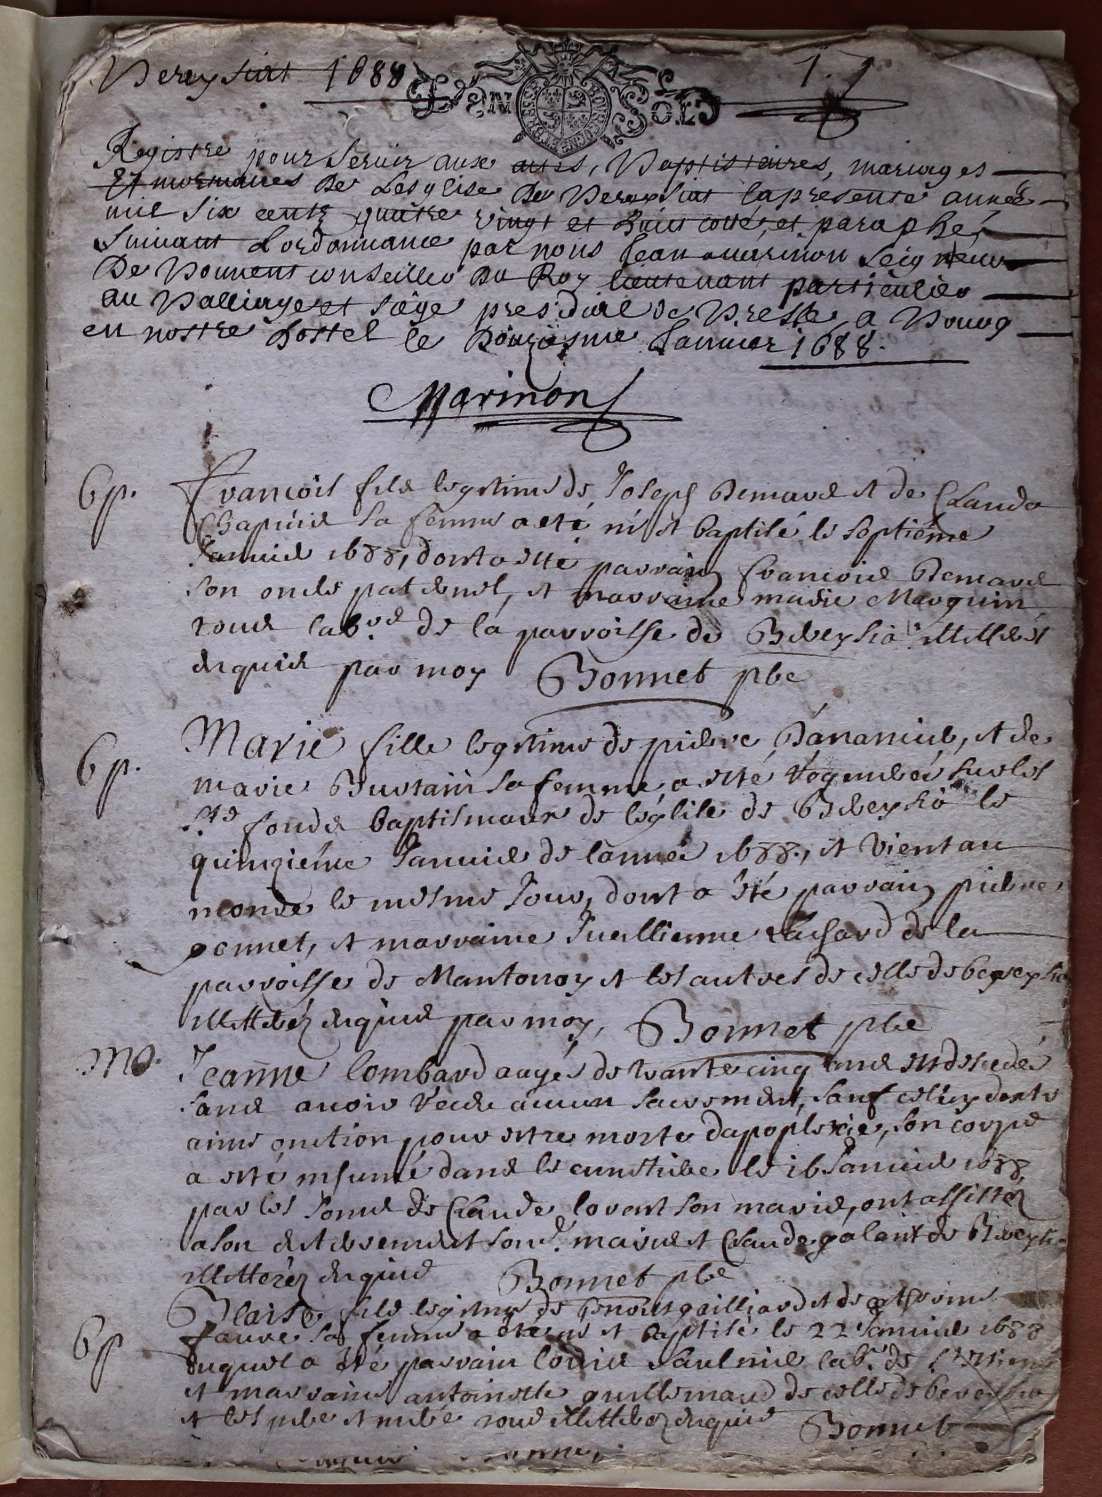 Bereysiat 1688 1.
UN SOL
Registre pour servir aux actes, Baptistaires, mariages
Et mortuaires de Lesglise de Bereysiat la presente année
mil six cents quatre vingt et huict cotté, et paraphé,
suivant Lordonnance par nous Jean marinon Seigneur
De Bonnent conseiller du Roy lieutenant particulier
au Balliage et siège presidial de Bresse, a Bourg
en nostre hostel le Douziesme Janvier 1688.
Marinon
bp. François fils legitime de Joseph Bernard et de Clauda
Chapuis sa femme a eté né et baptisé le septième
Janvier 1688, dont a esté parrain François Bernard
son oncle paternel, et marraine marie Marguin
tous lab.rs de la parroisse de Bereysia illitterés
enquis par moy Bonnet pbr
bp. Marie fille legitime de pierre et de
marie Burtain sa femme a esté regenerée sur les
s.ts fonds baptismaux de l'église de Bereysia le
quinzième Janvier de l'année 1688., et vient au
monde le mesme Jour, dont a été parrain pierre
ponnet, et marraine Jullienne de la
parroisse de Mantenay et les autres de celle de bereysia
illitterez enquis par moy, Bonnet pbr
mo. Jeanne lombard aagée de trante cinq ans est decedée
sans avoir receu aucun sacrement, sauf celuy de extr
aime onction pour estre morte dapoplexie, son corps
a esté inhumé dans le cimetiere le 16 Janvier 1688
par les soins de Claude lovent son marie, ont assistez
a son enterrement son d. marie et Claude galant de Bereysia
illitterez enquis Bonnet pbr
bp Blaise fils legitime de benoist gailliard et de
favre sa femme a été né et baptisé le 22 Janvier 1688
duquel a été parrain louis lab.r de
et marraine antoinette guillemaud de celle de bereysia
et les pere et mere tous illitterez enquis Bonnet